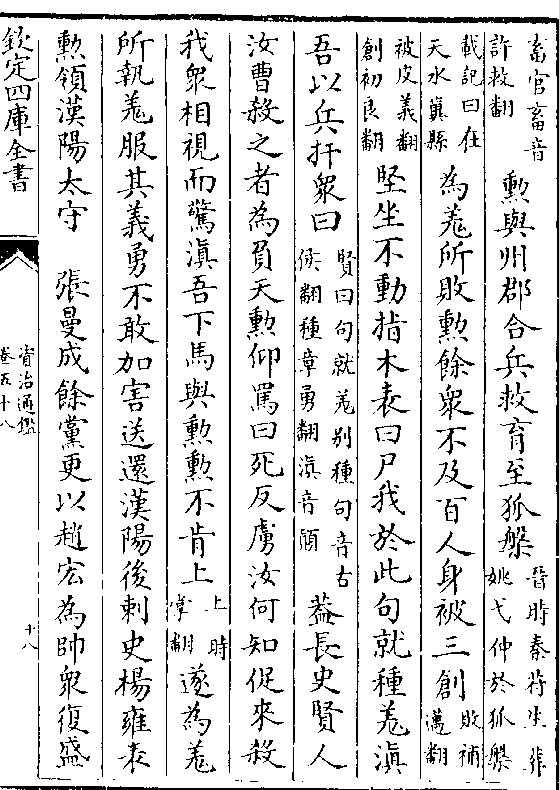 畜官畜音許救翻勲與州郡合兵救育至狐槃晉時秦苻生葬姚弋仲於狐槃
載記曰在天水冀縣為羗所敗勲餘衆不及百人身被三創敗補邁翻
被皮義翻創初良翻堅坐不動指木表曰尸我於此句就種羗滇
吾以兵扞衆曰賢曰句就羗别種句音古侯翻種章勇翻滇音顚葢長史賢人
汝曹殺之者為負天勲仰罵曰死反虜汝何知促來殺
我衆相視而驚滇吾下馬與勲勲不肯上上時掌翻遂為羗
所執羗服其義勇不敢加害送還漢陽後刺史楊雍表
勲領漢陽太守 張曼成餘黨更以趙宏為帥衆復盛
欽定四庫全書
資治通鑑
卷五十八
十八